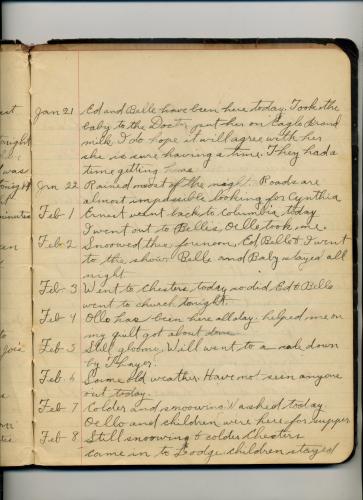 Jan 21 Ed and Belle have been here today. Took the
baby to the Doctor put her on Eagle Brand
milk. I do hope it will agree with her
she is sure having a time. They had a
time getting home.
Jan 22 Rained most of the night. Roads are
almost impassible looking for Cynthia
Feb 1 Ernest went back to Columbia today
I went out to Belles, Ollo took me.
Feb 2 Snowed this forenoon, Ed Belle & I went
to the show. Belle and Baby stayed all
night
Feb 3 Went to Chesters today so did Ed & Belle
went to church tonight.
Feb 4 Ollo has been here all day. helped me on
my quilt got about done
Feb 5 Still gloomy. Will went to a sale down
by Thayer.
Feb 6 Same old weather. Have not seen anyone
out today.
Feb 7 Colder and snowing. Washed today
Ollo and children were here for supper
Feb 8 Still snowing & colder Chesters
came in to Lodge. children stayed